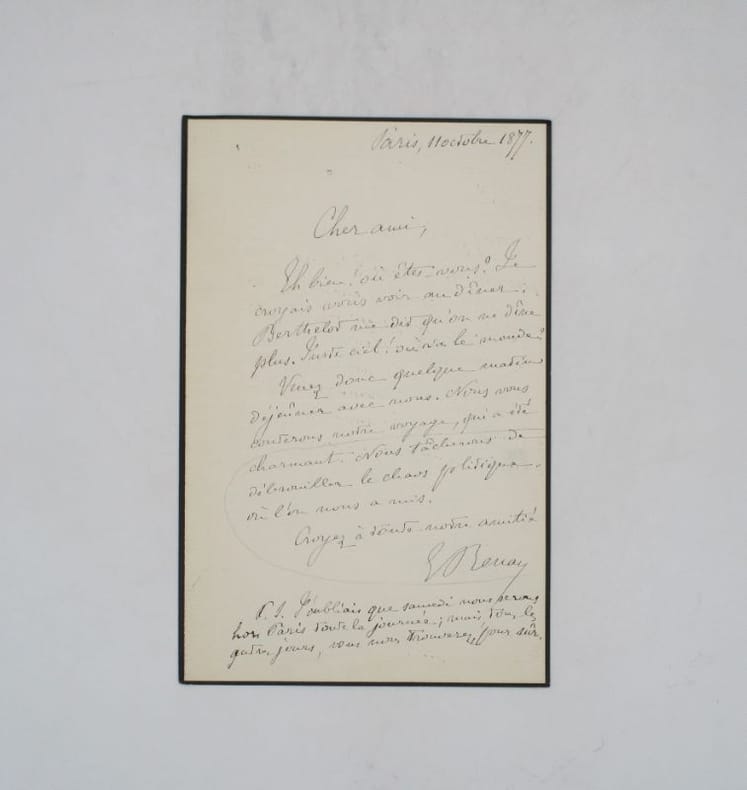 Paris, 11 octobre 1877.
Cher ami,
Eh bien! où êtes-vous? Je
croyais vous voir au dîner;
Berthelot me dit qu'on ne dîne
plus. Juste ciel! où va le monde?
Venez donc quelque matin
déjeûner avec nous. Nous vous
conterons notre voyage, qui a été
charmant. Nous tâcherons de
débrouiller le chaos politique
où l'on nous a mis.
Croyez à toute notre amitié
E Renan
P. S. J'oubliais que samedi nous serons
hors Paris toute la journée; mais, tous les
autres jours, vous nous trouverez, pour sûr.